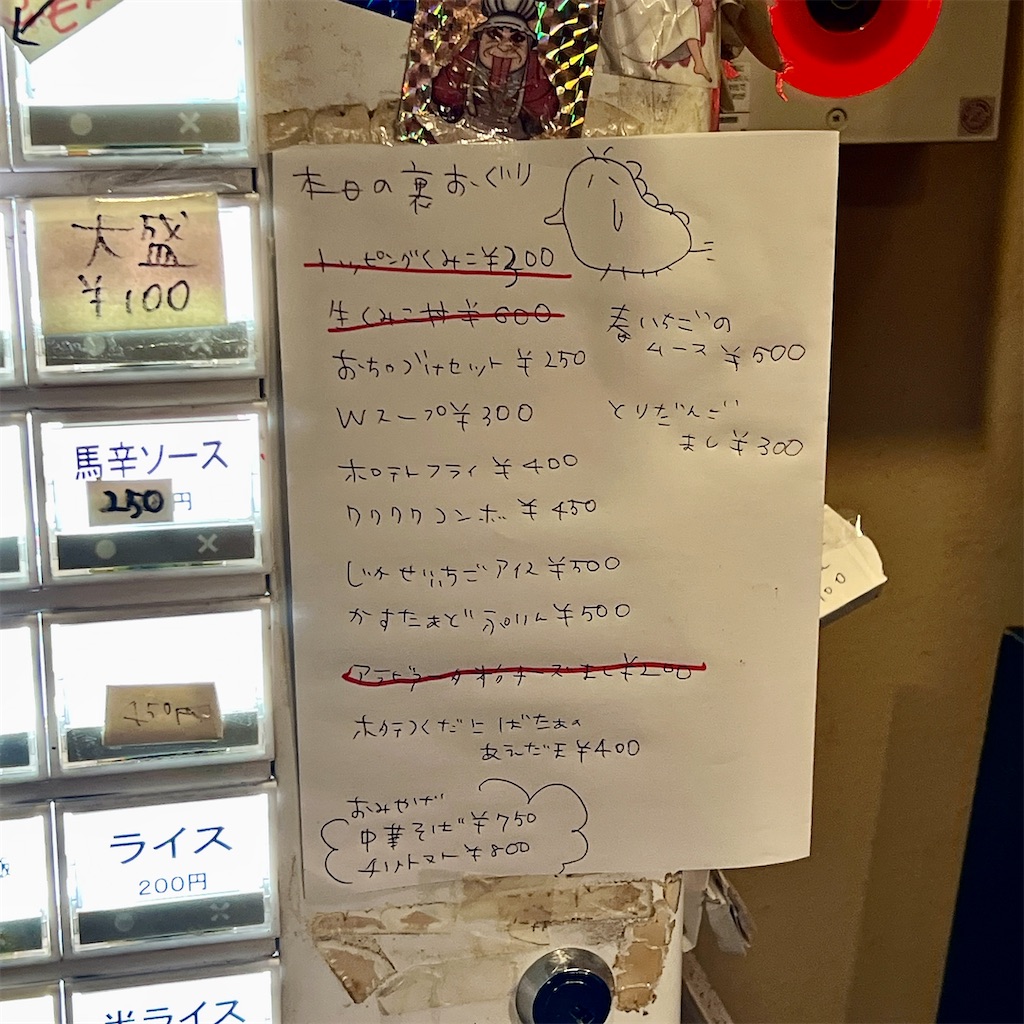 大盛
¥100
馬辛ソース
250円
450円
ライス
200円
半ライス
本日の裏おくり
トッピングくみこ¥300
生くみこ丼¥600
おちゃづけセット¥250
Wスープ¥300
ポテトフライ¥400
ワクワクコンボ¥450
じかせいいちごアイス¥500
かすたぁどぷりん¥500
粉チーズまし¥200
ホタテつくだにばたぁの
あえだま¥400
春いちごの
ムース¥500
とりだんご
まし¥300
おみやげ
中華そば¥750
チリトマト¥800